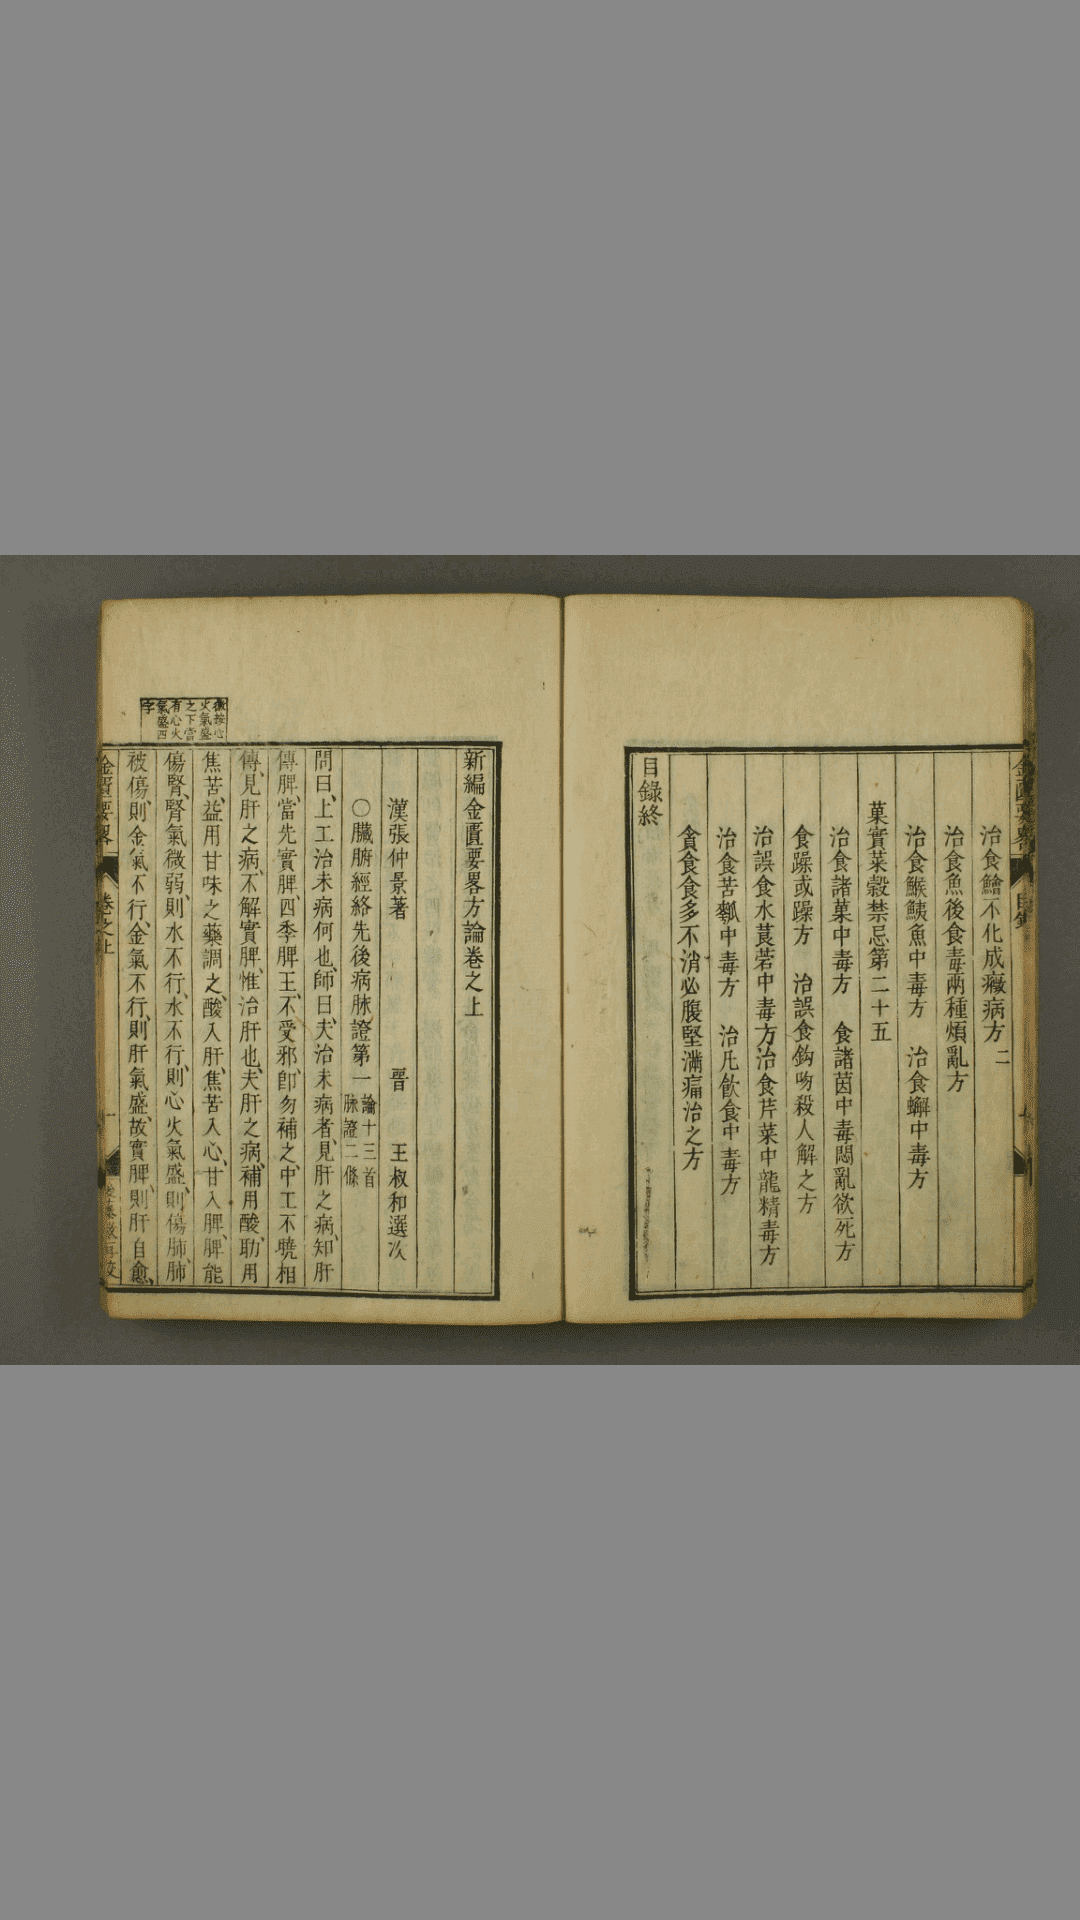 治食鱠不化成癥病方二
治食魚後食毒兩種煩亂方
治食鯸鮧魚中毒方　治食蠏中毒方
菓實菜穀禁忌第二十五
治食諸菓中毒方　食諸茵中毒悶亂欲死方
食躁或躁方　治誤食鈎吻殺人解之方
治誤食水莨菪中毒方治食芹菜中龍精毒方
治食苦瓠中毒方　治凡飲食中毒方
貪食食多不消必腹堅滿痛治之方
目錄終
新編金匱要畧方論卷之上
漢張仲景著　晉　王叔和選次
○臟腑經絡先後病脉證第一　論十三首
脉證二條
問曰、上工治未病何也、師曰夫治未病者、見肝之病、知肝
傳脾、當先實脾、四季脾王、不受邪、卽勿補之、中工不曉相
傳、見肝之病、不解實脾、惟治肝也、夫肝之病、補用酸、助用
焦苦、益用甘味之藥調之、酸入肝、焦苦入心、甘入脾、脾能
傷腎、腎氣微弱、則水不行、水不行、則心火氣盛、則傷肺、肺
被傷、則金氣不行、金氣不行、則肝氣盛、故實脾、則肝自愈、
徽按心
火氣盛
之下當
有心火
氣盛四
字
金匱要畧
卷之上
一